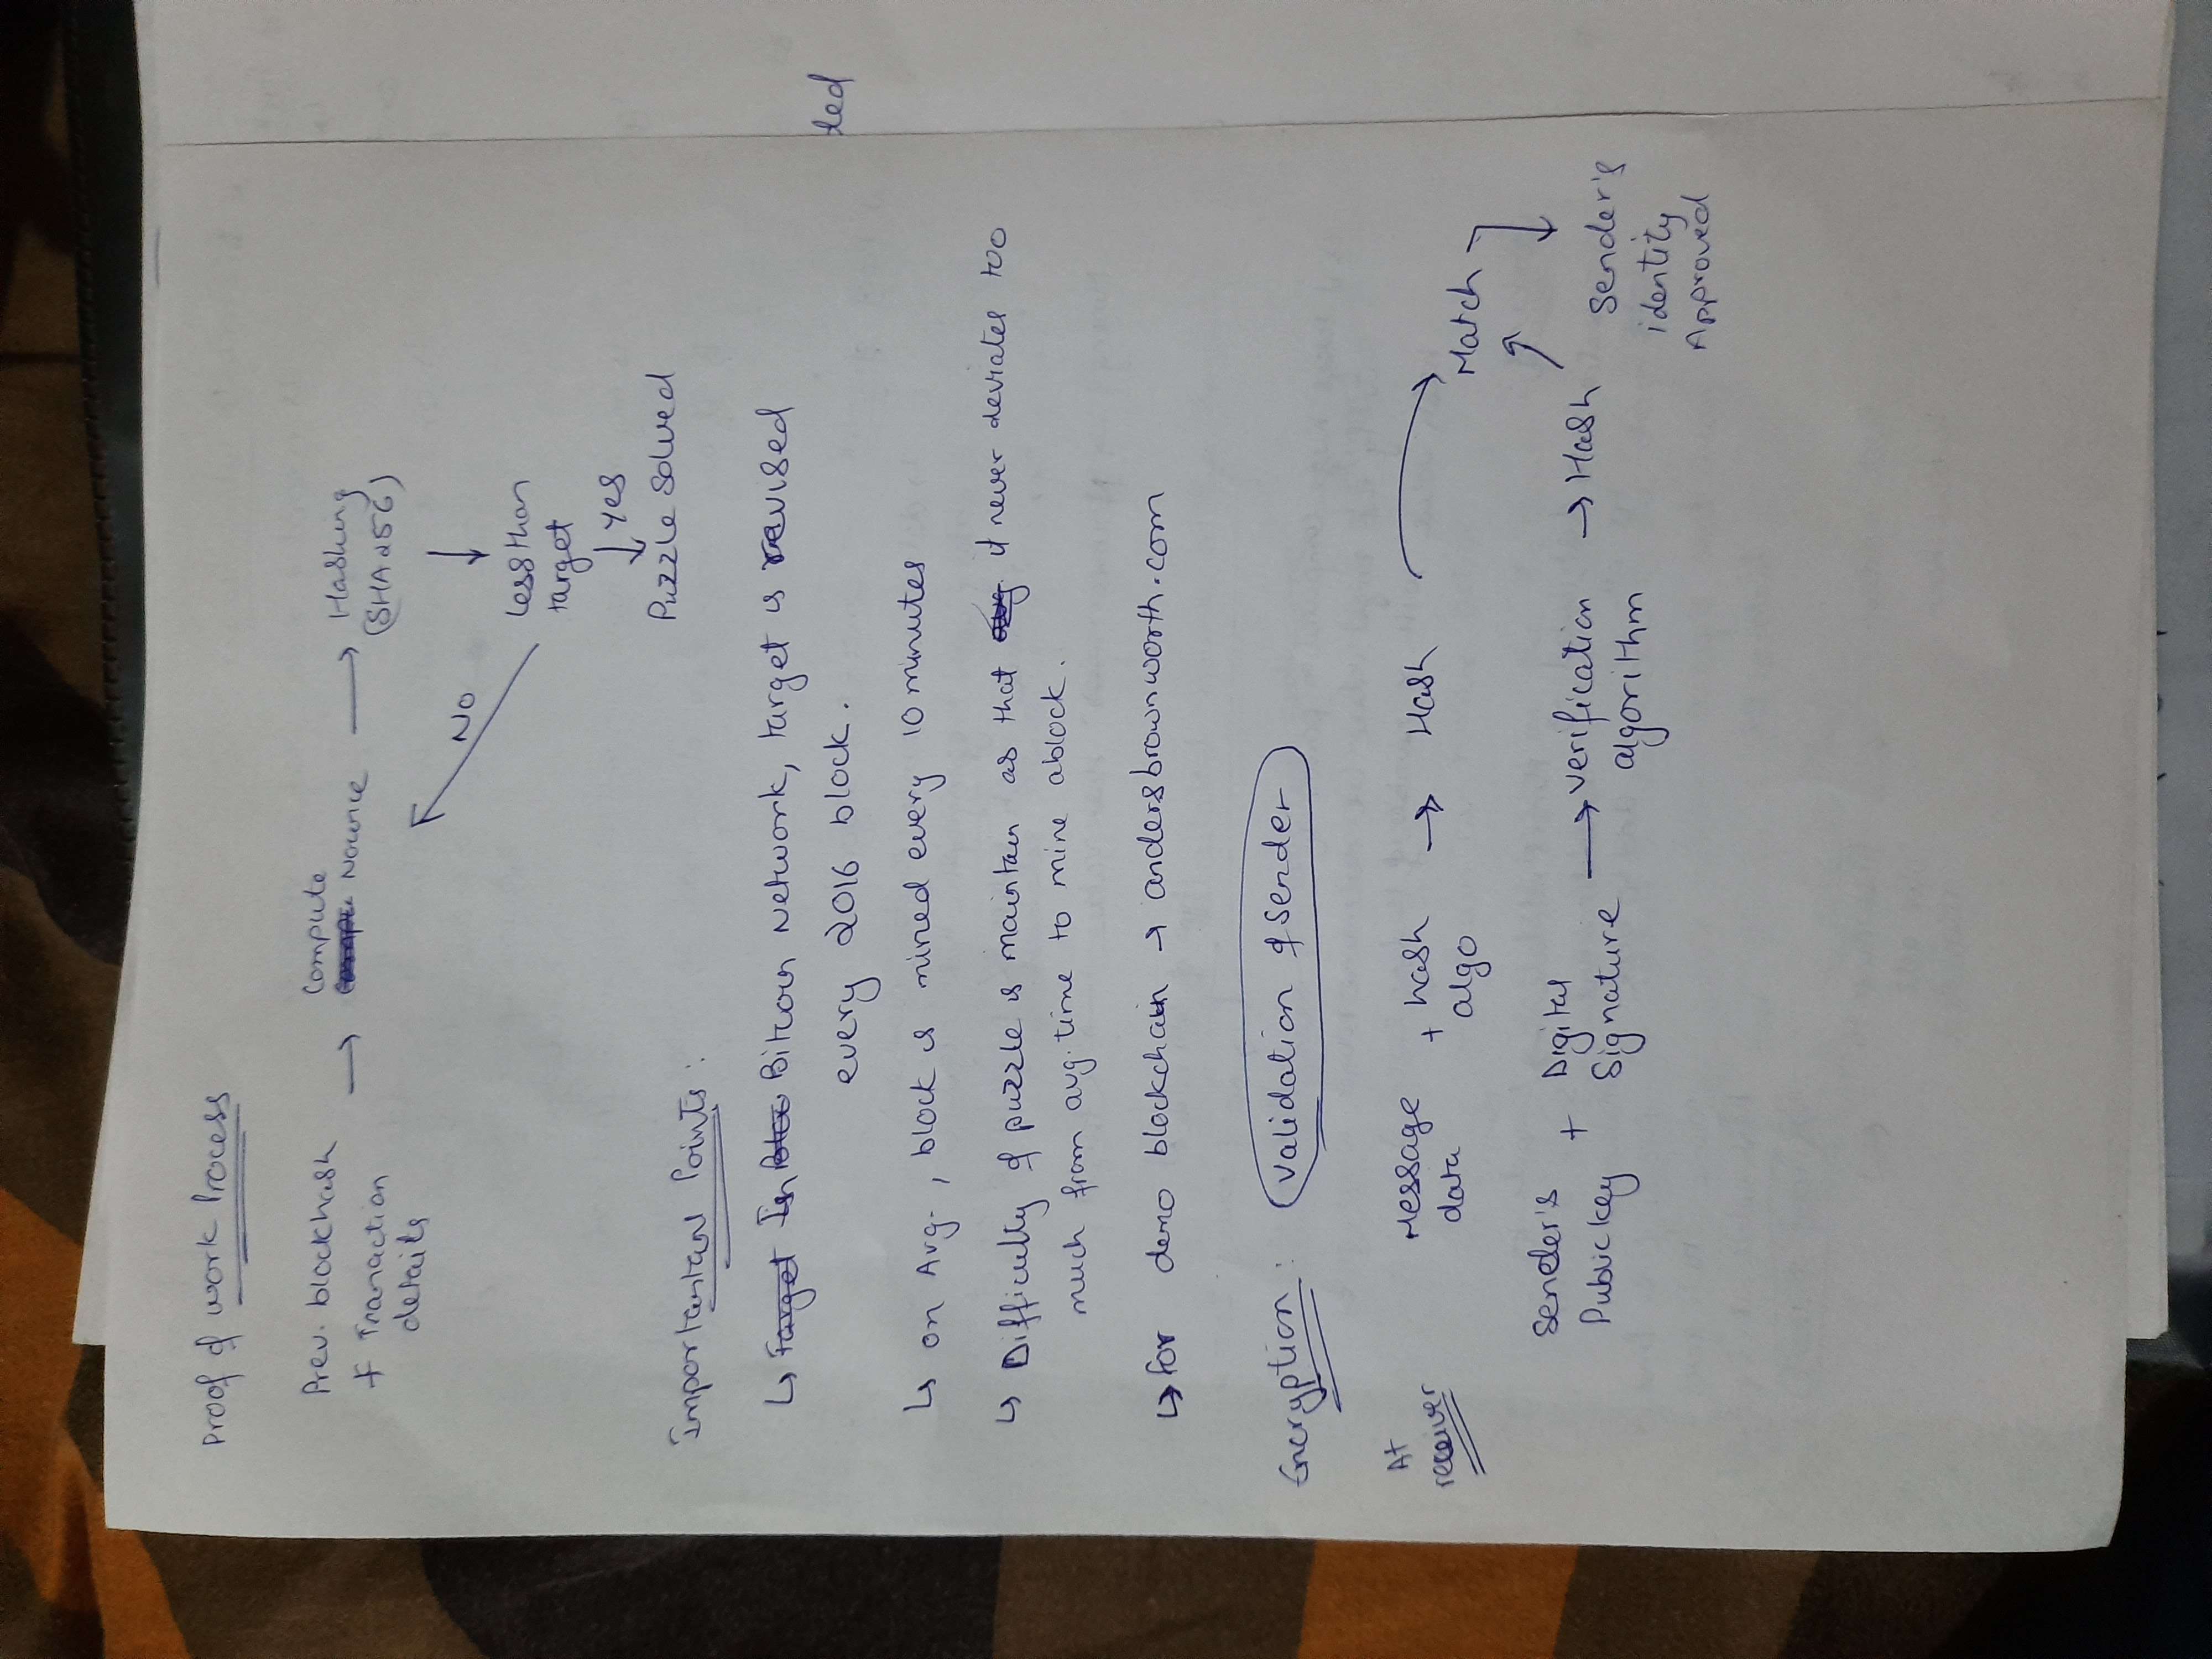 Proof of work Process
Prev. blockhash
+ Tranaction
details
→
Compute
Nounce
→
Hashing
(SHA256)
No
Less than
target
Yes
Puzzle Solved
Importantant Points:
↳ Target In Bitcoin Network, target is revised
every 2016 block.
↳ on Avg., block is mined every 10 minutes
↳ Difficulty of puzzle is maintain as that avg it never deviates too
much from avg. time to mine a block.
↳ for demo blockchain → andersbrownworth.com
ded
Encryption: Validation of Sender
At
receiver
Message
data
+ hash
algo
→ Hash
Match
Sender's
Public key
+ Digital
Signature
→ verification
algorithm
→ Hash
Sender's
identity
Approved